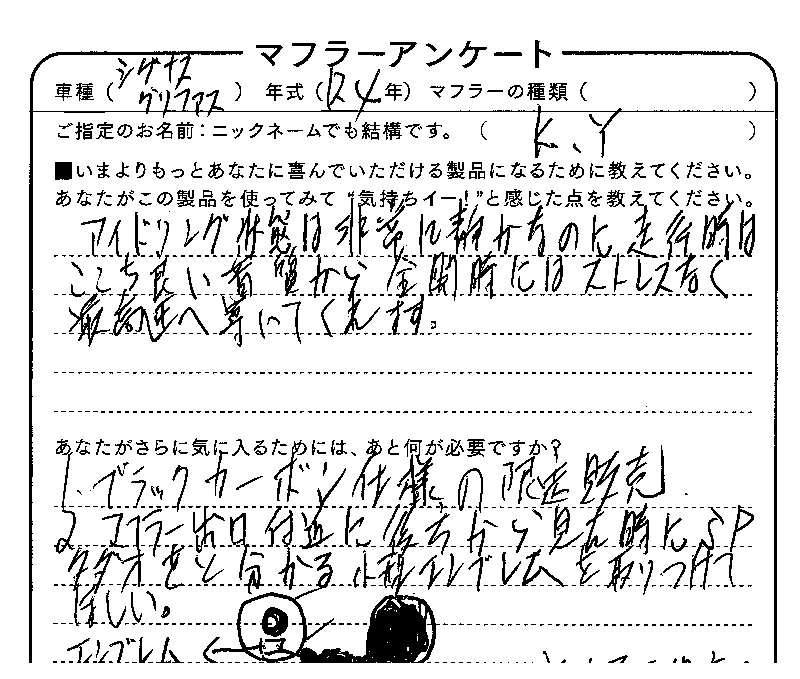 マフラーアンケート
車種（シグナス グリファス）年式（R4年）マフラーの種類（　）
ご指定のお名前：ニックネームでも結構です。（K.Y）
■いまよりもっとあなたに喜んでいただける製品になるために教えてください。
あなたがこの製品を使ってみて“気持ちイー！”と感じた点を教えてください。
アイドリング状態は非常に静かなのに走行時は
ここち良い音質から全開時にはストレスなく
最高速へ導いてくれます。
あなたがさらに気に入るためには、あと何が必要ですか？
1.ブラックカーボン仕様の限定販売
2 マフラー出口付近に後ちから見た時にSP
タダオだと分かる小型エンブレムを取りつけて
ほしい。
エンブレム